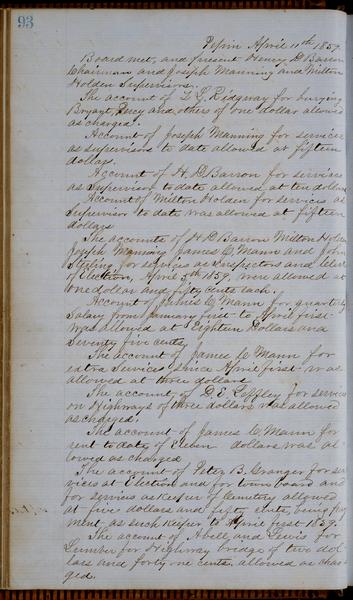 93
Pepin April 11th 1859.
Board met, and present Henry D Barron
Chairman and Joseph Manning and Milton
Holden Supervisors.
The account of G. Ridgway for burying
Bryant, and others of one dollar allowed
as charged.
Account of Joseph Manning for services
as supervisor to date allowed at fifteen
dollars.
Account of H. D Barron for services
as Supervisor to date allowed at ten dollars
Account of Milton Holden for services as
Supervisor to date was allowed at fifteen
dollars
The accounts of H D Barron Milton Holden
Joseph Manning James C. Mann and John
for services as Inspectors and Clerks
of Election, April 5th 1859 were allowed at
one dollar and fifty cents each.
Account of James C Mann for quarterly
Salary from January first to April first
was allowed at Eighteen Dollars and
Seventy five cents.
The account of James C Mann for
extra services since April first was
allowed at three dollars
The account of D. E. for services
on Highways of three dollars was allowed
as charged.
The account of James C. Mann for
rent to date of Eleven dollars was al-
lowed as charged
The account of Peter B. Granger for ser
vices at Election and for town board and
for services as Keeper of Cemetery allowed
at five dollars and fifty cents, being pay
ment as such Keeper to April first 1859.
The account of Abell and Lewis for
Lumber for Highway bridge of two dol
lars and forty one cents allowed as char
ged.